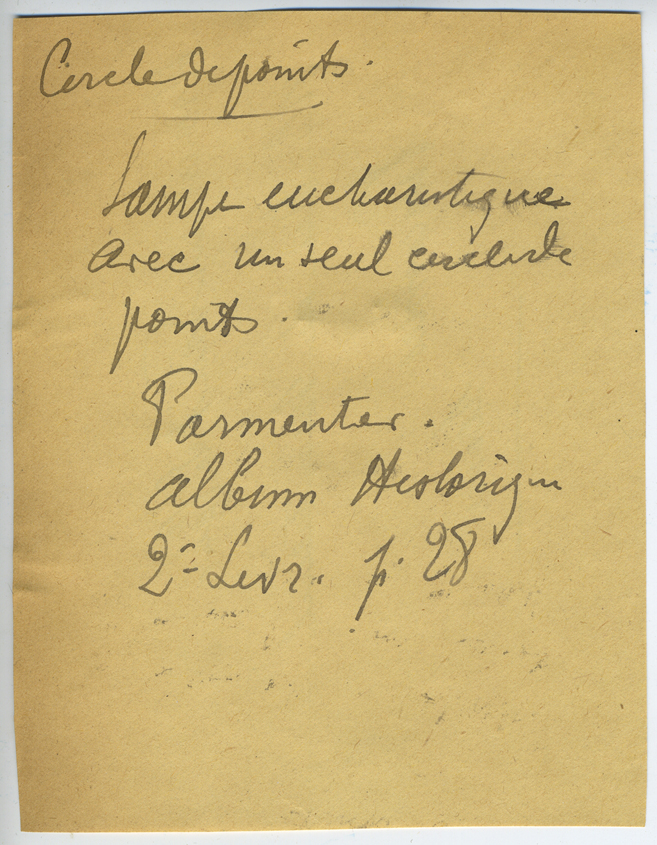 Cercle de points.
Lampe eucharistique
avec un seul cercle de
points.
Parmentier.
album Historique
2e Livr. p. 28